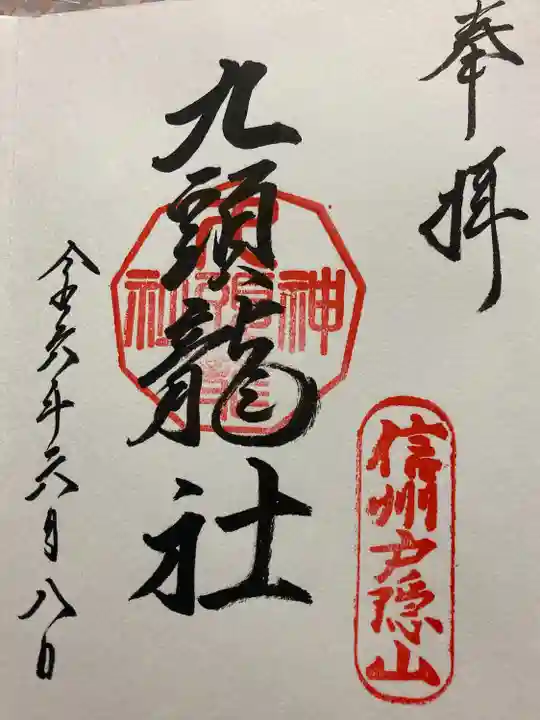 奉拝
信州戸隠山
九頭龍社
令和六年六月八日